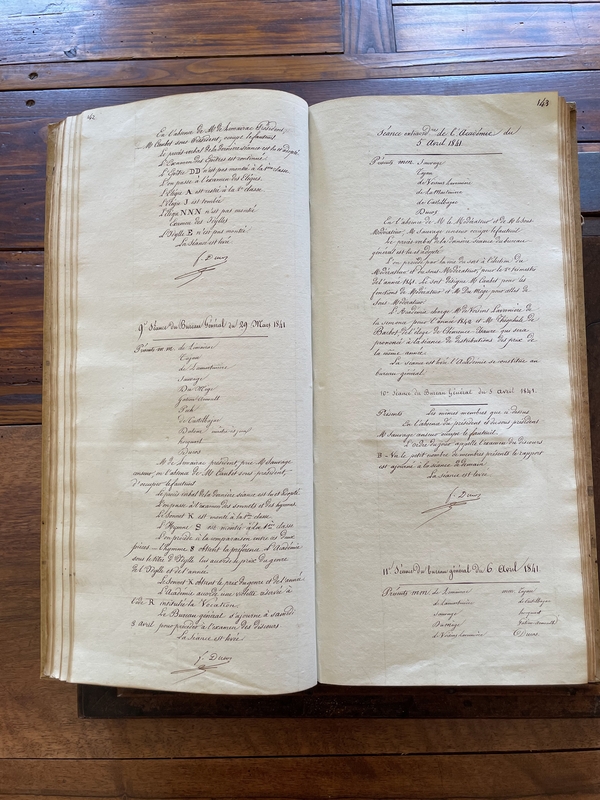 142
En l'absence de Mr de Limairac Président,
Mr Caubet sous Président, occupe le fauteuil.
Le procès verbal de la dernière séance est lu et adopté.
L'Examen des Epitres est continué.
L'Epitre DD n'est pas monté à la 1ère classe.
L'on passe à l'examen des Eloges.
L'Eloge A est resté à la 1e classe.
L'Eloge J est tombé
L'Eloge NNN n'est pas monté.
Examen des Idylles
L'Idylle E n'est pas monté.
La Séance est levé.
f. Ducos
9e Séance du Bureau Général du 29 Mars 1841
Présents m m de Limairac
Cayou
de Lamartinière
Sauvage
Du Mège
Pech
de Castelbajac
Ducos
Mr de Limairac président, prie Mr Sauvage
en l'absence de Mr Caubet sous président
d'occuper le fauteuil
Le procès verbal de la dernière séance est lu et adopté.
L'on passe à l'examen des sonnets et des hymnes.
Le Sonnet K est monté à la 1re classe.
L'Hymne S est monté à la 1ère classe
L'on procède à la comparaison entre ces deux
pièces — l'hymne S obtient la préférence. L'Académie
sous le titre d'Idylle lui accorde le prix du genre
de l'Idylle et de l'année.
Le Sonnet K obtient le prix du genre et de l'année.
L'Académie accorde une violette réservée à
l'ode R intitulée la Vocation.
Le Bureau général s'ajourne à samedi
3 avril pour procéder à l'examen des discours
La Séance est levée
f. Ducos
143
Séance extraordre de l'Académie du
5 Avril 1841
Présents mm. Sauvage
Cayou
de Voisins Lavernière
de La Martinière
de Castelbajac
Ducos
En l'absence de Mr le Modérateur et de Mr le Sous
Modérateur, Mr Sauvage ancien occupe le fauteuil.
Le procès verbal de la dernière séance du bureau
général est lu et adopté.
L'on procède par la voie du sort à l'élection du
Modérateur et du sous Modérateur, pour le 2e trimestre
de l'année 1841. Le sort désigne Mr Caubet pour les
fonctions de Modérateur, et Mr Du Mège pour celles de
Sous Modérateur.
L'Académie charge Mr de Voisins Lavernière de
la semonce pour l'année 1842 et Mr Théophile de
Barbot de l'éloge de Clémence Isaure qui sera
prononcé à la séance de distributions des prix de
la même année.
La séance est levée l'Académie se constitue en
bureau général.
10e Séance de Bureau Général du 5 Avril 1841.
Présents Les mêmes membres que ci dessus
En l'absence du président et du sous président
Mr Sauvage ancien occupe le fauteuil.
L'ordre du jour appelle l'examen du discours
B — Vu le petit nombre de membres présents le rapport
est ajourné à la séance de demain.
La séance est levée
f. Ducos
11e Séance du bureau général du 6 Avril 1841.
Présents mm de Limairac mm. Cayou
de Lamartinière de Castelbajac
Sauvage
Dumège
de Voisins Lavernière Ducos